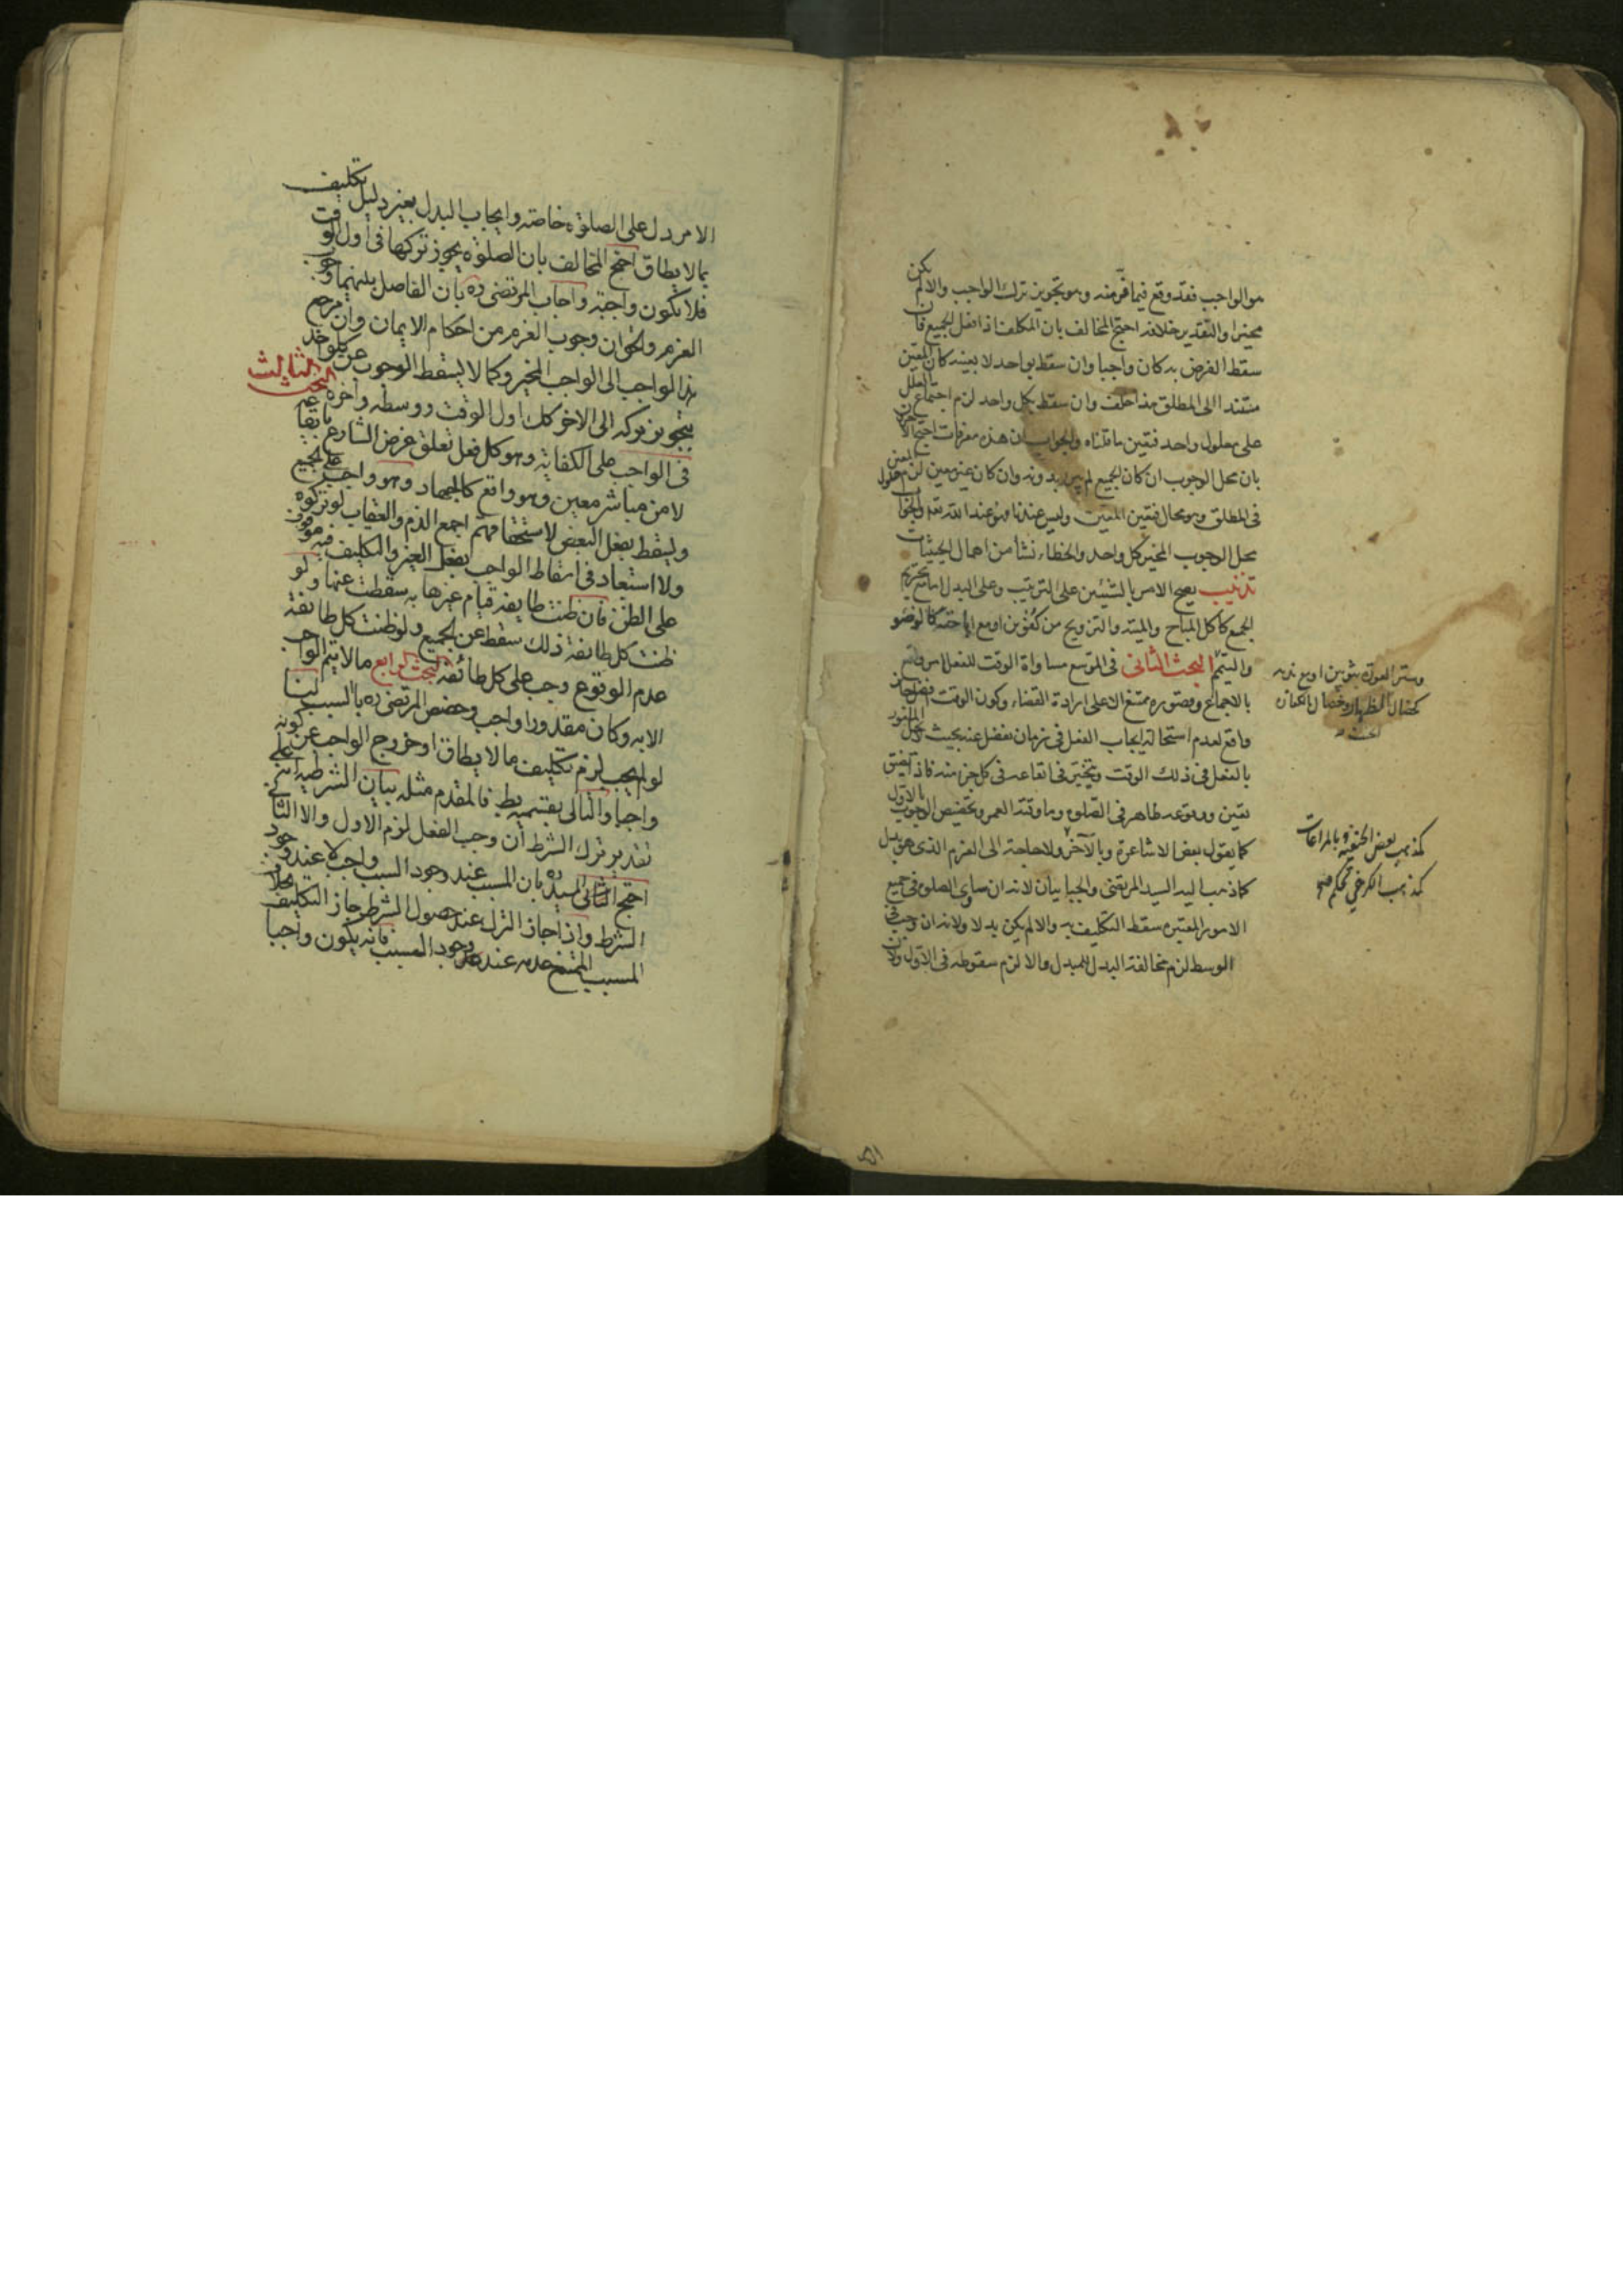 هو الواجب فقد وقع فيما فر منه وهو تجويز ترك الواجب والا لم يكن
مخيرا والتقدير خلافه احتج المخالف بان المكلف اذا فعل الجميع فان
سقط الفرض به كان واجبا وان سقط بواحد لا بعينه كان المعين
مستندا الى المطلق هذا خلف وان سقط بكل واحد لزم اجتماع العلل
على معلول واحد فتعين ما قلناه والجواب ان هذه معرفات احتج الآخرون
بان محل الوجوب ان كان الجميع لم يبرء بدونه وان كان غير معين لزم حلول المعين
فى المطلق وهو محال فتعين المعين وليس عندنا فهو عند الله تعه والجواب
محل الوجوب المخير كل واحد والخطاء نشأ من اهمال الحيثيات
تذنيب يصح الامر بالشيئين على الترتيب وعلى البدل اما مع تحريم
الجمع كاكل المباح والميتة والتزويج من كفوين او مع اباحته كالوضو
والتيمم البحث الثانى فى الموسع مساواة الوقت للفعل امر واقع
بالاجماع وقصوره ممتنع الا على ارادة القضاء وكون الوقت افضل جائز
واقع لعدم استحالة ايجاب الفعل فى زمان يفضل عنه بحيث
بالفعل فى ذلك الوقت ويتخير فى ايقاعه فى كل جزء منه فاذا تضيق
تعين ووقوعه ظاهر فى الصلوه وما وقته العمر وتخصيص الوجوب بالاول
كما يقول بعض الاشاعرة وبالآخر ولا حاجة الى العزم الذى هو بدل
كما ذهب اليه السيد المرتضى والجبائيان لانه ان ساوى الصلوة فى جميع
الامور المعتبره سقط التكليف به والا لم يكن بدلا ولانه ان وجب فى
الوسط لزم مخالفة البدل للمبدل والا لزم سقوطه فى الاول ولان
وستر العورة بثوبين او مع ندبه
كخصال الظهار وخصال الكفارة
كمذهب بعض الحنفية وبالمراعات
كمذهب الكرخي تحكم صح
الامر دل على الصلوة خاصة وايجاب البدل بغير دليل تكليف
بما لا يطاق احتج المخالف بان الصلوة يجوز تركها فى اول الوقت
فلا تكون واجبة واجاب المرتضى ره بان الفاصل بينهما وجوب
العزم والحق ان وجوب العزم من احكام الايمان وان مرجع
هذا الواجب الى الواجب المخير وكما لا يسقط الوجوب عن كل واحد
بتجويز تركه الى الاخر كك اول الوقت ووسطه واخره البحث الثالث
فى الواجب على الكفاية وهو كل فعل تعلق غرض الشارع بايقاعه
لا من مباشر معين وهو واقع كالجهاد وهو واجب على الجميع
ويسقط بفعل البعض لاستحقاقهم اجمع الذم والعقاب لو تركوه
ولا استبعاد فى اسقاط الواجب بفعل الغير والتكليف فيه موقوف
على الظن فان ظنت طايفة قيام غيرها به سقطت عنها ولو
ظنت كل طايفة ذلك سقط عن الجميع ولو ظنت كل طايفة
عدم الوقوع وجب على كل طائفة البحث الرابع ما لا يتم الواجب
الا به وكان مقدورا واجب وخصص المرتضى ره بالسبب لنا
لو لم يجب لزم تكليف ما لا يطاق او خروج الواجب عن كونه
واجبا والتالى بقسميه بط فالمقدم مثله بيان الشرطية انه على
تقدير ترك الشرط ان وجب الفعل لزم الاول والا الثانى
احتج السيد ره بان المسبب عند وجود السبب واجب لا عند وجود
الشرط واذا جاز الترك عند حصول الشرط جاز التكليف بخلاف
المسبب الممتنع عدمه عند وجود السبب فانه يكون واجبا